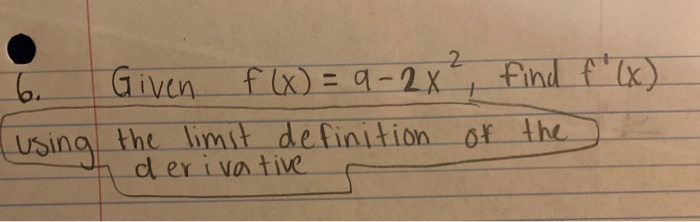 6. Given f(x) = 9-2x², find f'(x)
using the limit definition of the
derivative